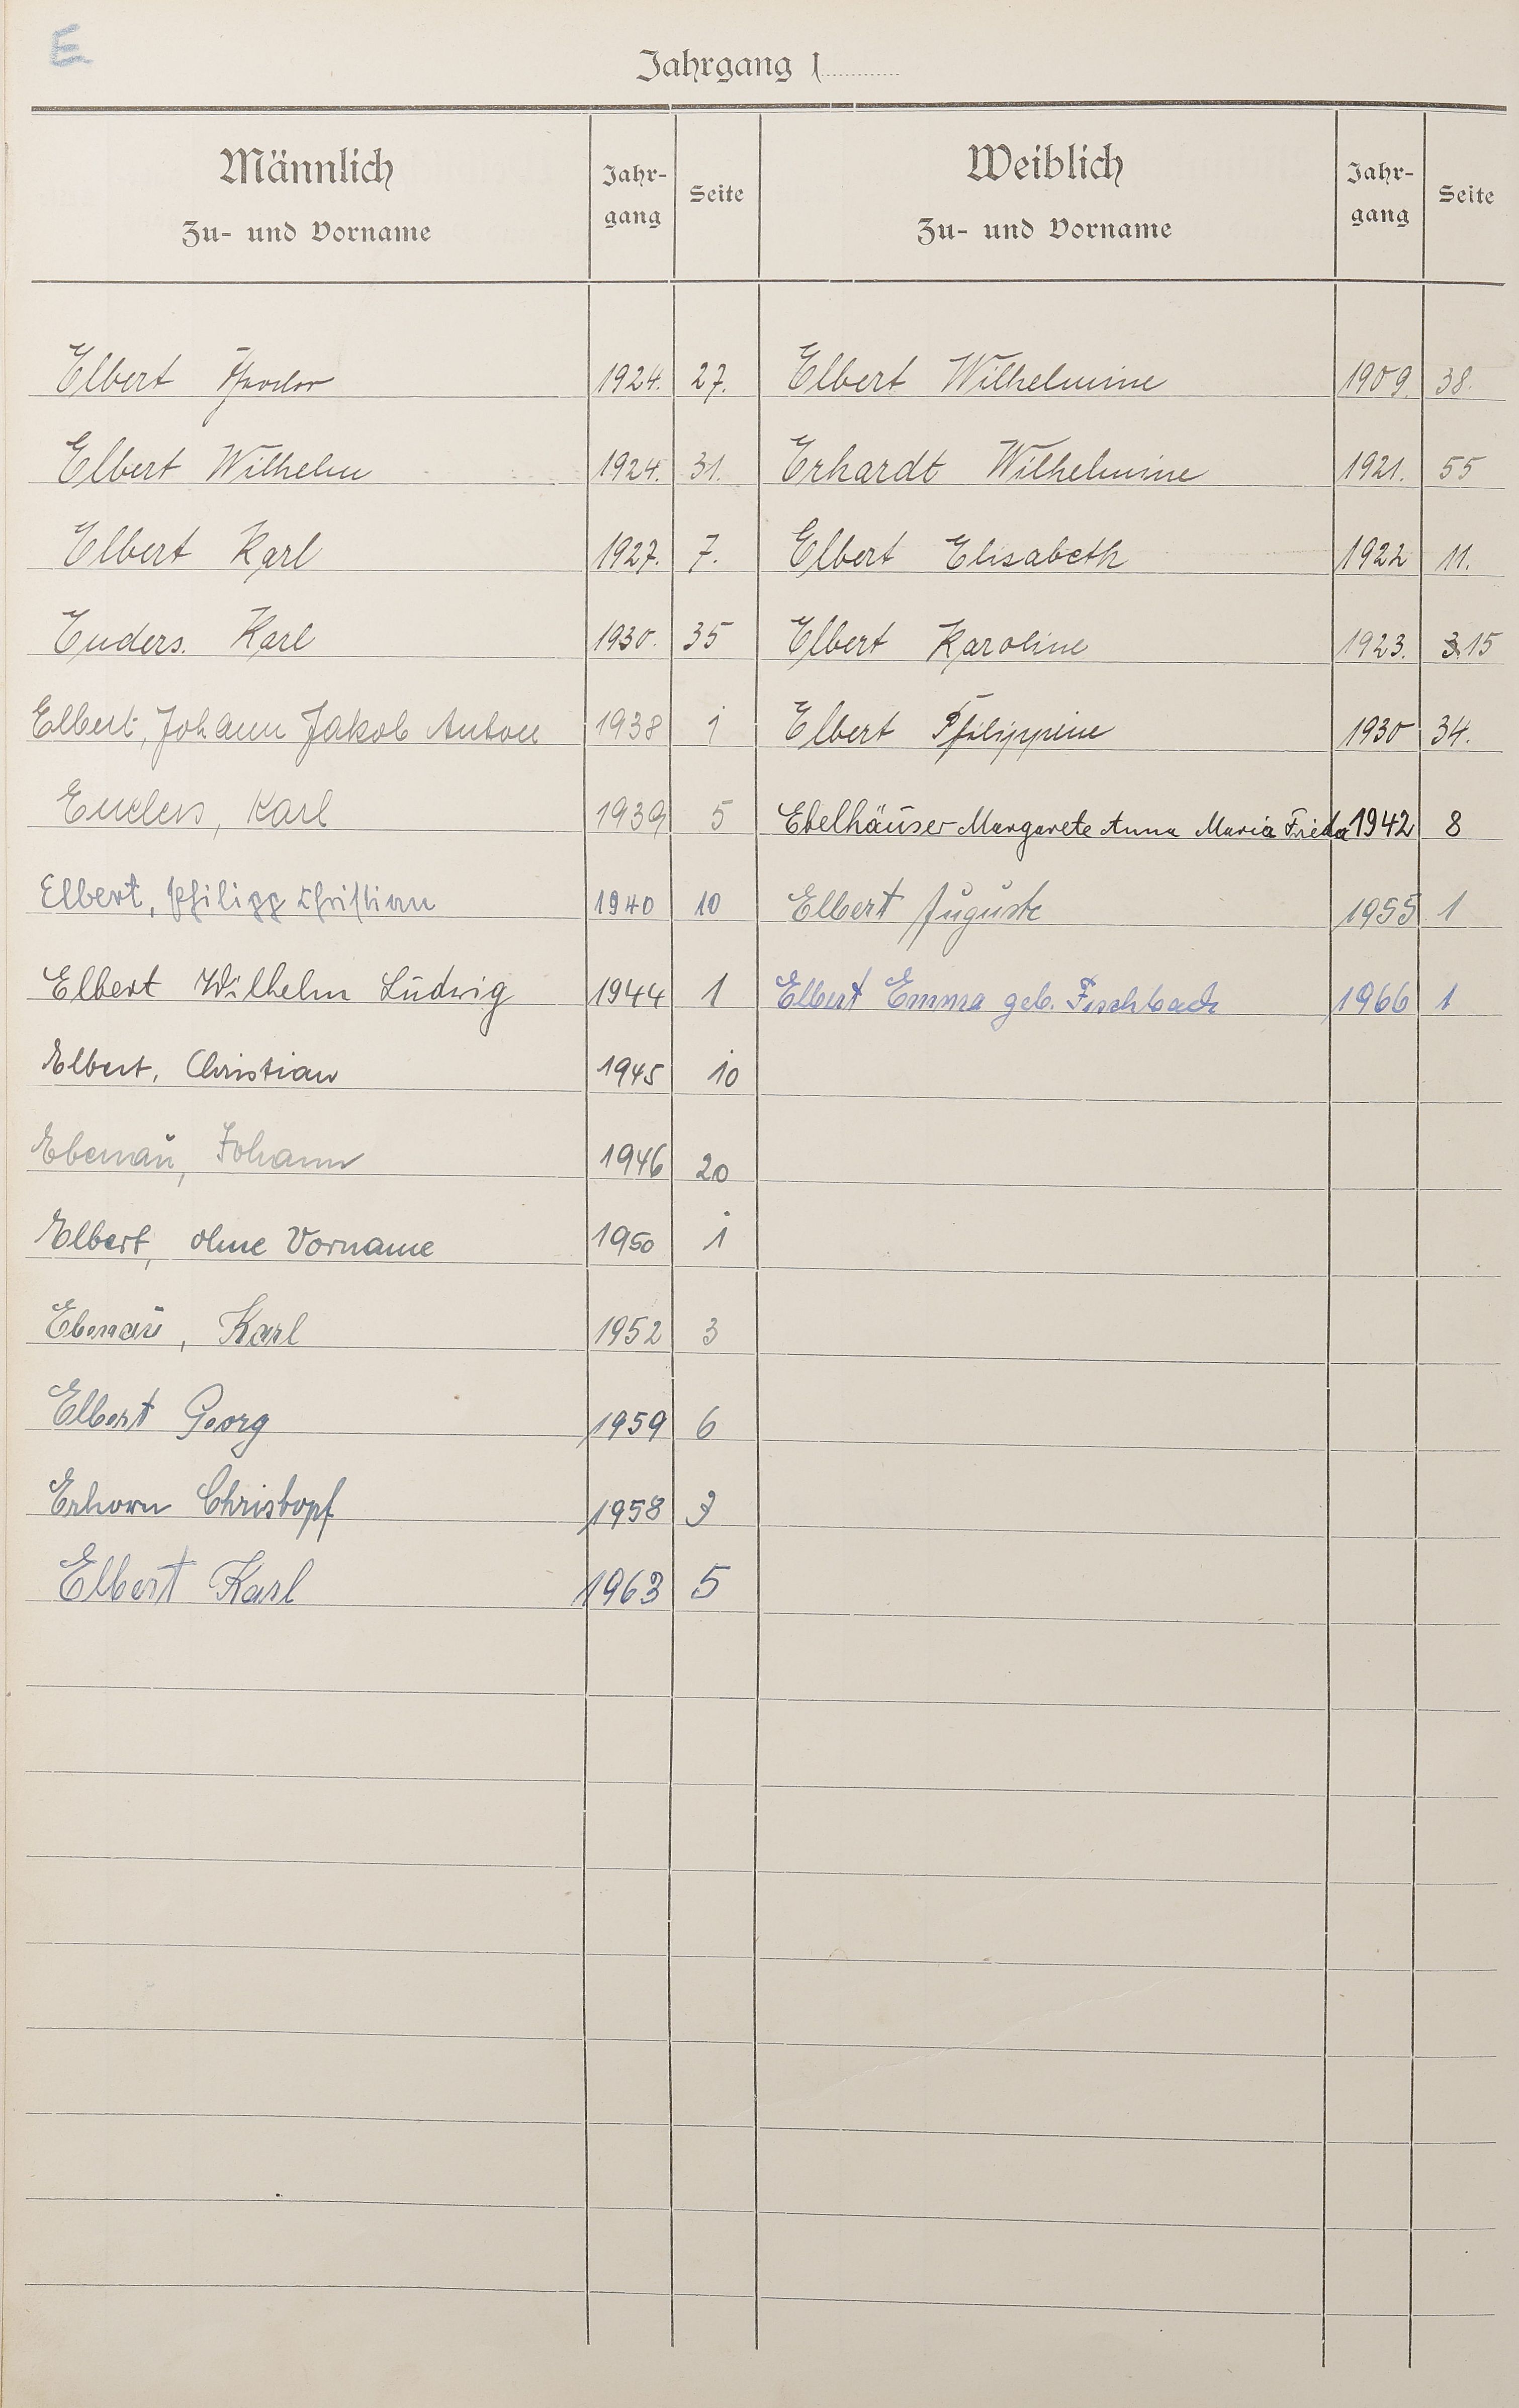 E
Jahrgang 1
Männlich
Zu- und Vorname
Jahr-
gang
Seite
Weiblich
Zu- und Vorname
Jahr-
gang
Seite
Elbert Theodor 1924. 27. Elbert Wilhelmine 1909. 38.
Elbert Wilhelm 1924. 31. Erhardt Wilhelmine 1921. 55
Elbert Karl 1927. 7. Elbert Elisabeth 1922 11.
Enders. Karl 1930. 35 Elbert Karoline 1923. 15
Elbert, Johann Jakob Anton 1938 1 Elbert Philippine 1930 34.
Enders, Karl 1939 5 Ebelhäuser Margarete Anna Maria Frieda 1942 8
Elbert, Philipp Christian 1940 10 Elbert Auguste 1955 1
Elbert Wilhelm Ludwig 1944 1 Elbert Emma geb. Fischbach 1966 1
Elbert, Christian 1945 10
Ebenau, Johann 1946 20
Elbert, ohne Vorname 1950 1
Ebenau, Karl 1952 3
Elbert Georg 1959 6
Erhorn Christopf 1958 3
Elbert Karl 1963 5